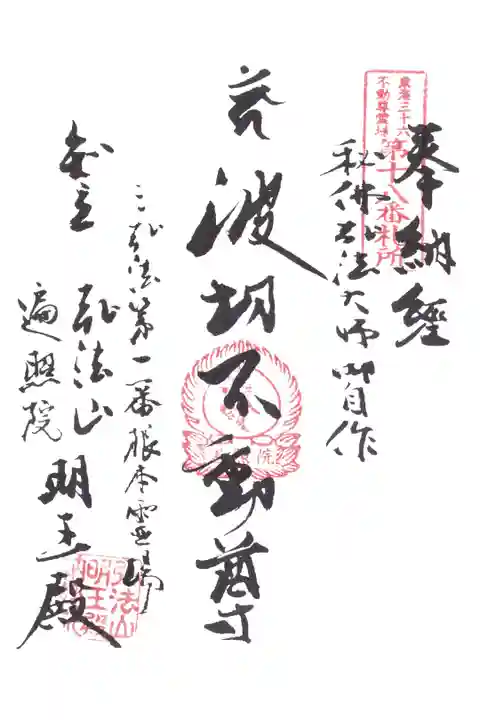 東海三十六
不動尊霊場
第十八番札所
奉納経
秘佛弘法大师御自作
波切不動尊
三弘法第一番根本霊場
知立 弘法山
遍照院 明王殿
弘法山
明王殿